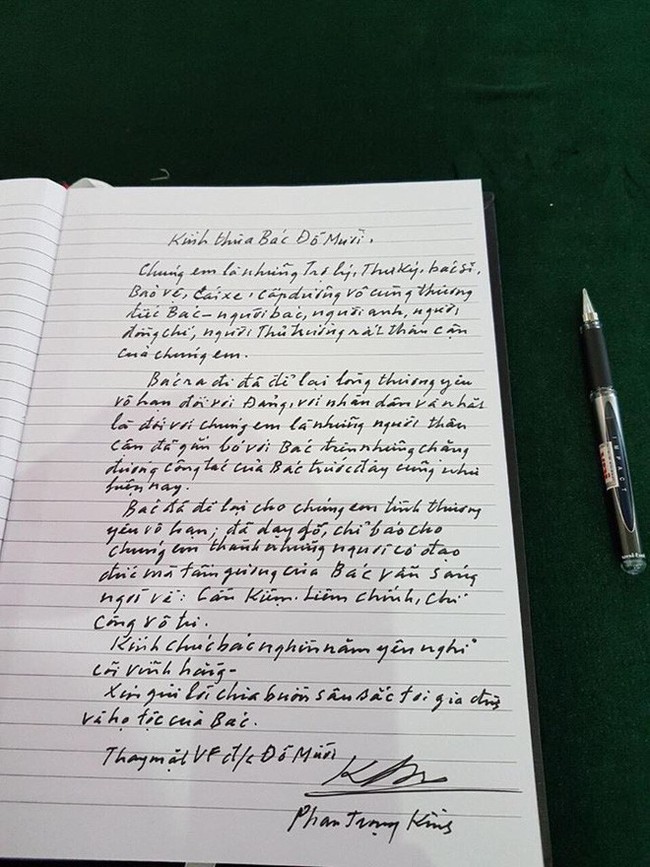 Kính thưa Bác Đỗ Mười,
Chúng em là những Trợ lý, Thư ký, bác sĩ,
Bảo vệ, Lái xe, cấp dưỡng vô cùng thương
tiếc Bác - người bác, người anh, người
đồng chí, người Thủ trưởng rất thân cận
của chúng em.
Bác ra đi đã để lại lòng thương yêu
vô hạn đối với Đảng, với nhân dân và nhất
là đối với chúng em là những người thân
cận đã gắn bó với Bác trên những chặng
đường công tác của Bác trước đây cũng như
hiện nay.
Bác đã để lại cho chúng em tình thương
yêu vô hạn; đã dạy dỗ, chỉ bảo cho
chúng em thành những người có đạo
đức mà tấm gương của Bác vẫn sáng
ngời về: Cần Kiệm. Liêm chính, chí
công vô tư.
Kính chúc bác nghìn năm yên nghỉ
cõi vĩnh hằng-
Xin gửi lời chia buồn sâu sắc tới gia đình
và họ tộc của Bác.
Thay mặt VP đ/c Đỗ Mười
Phan Trọng Kính
IMPACT
uni-ball